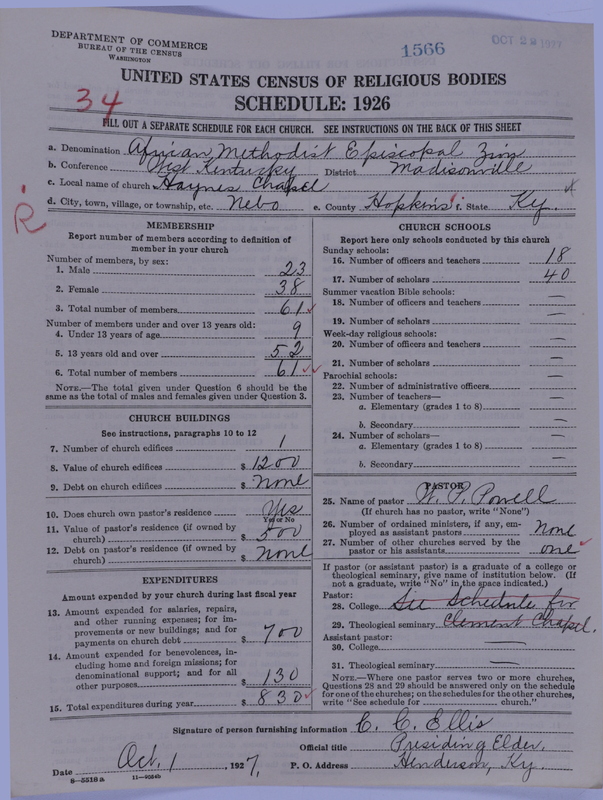 DEPARTMENT OF COMMERCE
BUREAU OF THE CENSUS
WASHINGTON
1566
OCT 28 1927
UNITED STATES CENSUS OF RELIGIOUS BODIES
SCHEDULE: 1926
34
FILL OUT A SEPARATE SCHEDULE FOR EACH CHURCH. SEE INSTRUCTIONS ON THE BACK OF THIS SHEET
a. Denomination African Methodist Episcopal Zion
b. Conference West Kentucky District Madisonville
c. Local name of church Haynes Chapel
d. City, town, village, or township, etc. Nebo e. County Hopkins f. State Ky.
R
MEMBERSHIP
Report number of members according to definition of member in your church
Number of members, by sex:
1. Male 23
2. Female 38
3. Total number of members 61
Number of members under and over 13 years old:
4. Under 13 years of age 9
5. 13 years old and over 52
6. Total number of members 61
NOTE.—The total given under Question 6 should be the
same as the total of males and females given under Question 3.
CHURCH BUILDINGS
See instructions, paragraphs 10 to 12
7. Number of church edifices 1
8. Value of church edifices $ 1200
9. Debt on church edifices $ none
10. Does church own pastor's residence Yes
Yes or No
11. Value of pastor's residence (if owned by
church) $ 500
12. Debt on pastor's residence (if owned by
church) $ none
EXPENDITURES
Amount expended by your church during last fiscal year
13. Amount expended for salaries, repairs,
and other running expenses; for im-
provements or new buildings; and for
payments on church debt $ 700
14. Amount expended for benevolences, in-
cluding home and foreign missions; for
denominational support; and for all
other purposes $ 130
15. Total expenditures during year $ 830
CHURCH SCHOOLS
Report here only schools conducted by this church
Sunday schools:
16. Number of officers and teachers 18
17. Number of scholars 40
Summer vacation Bible schools:
18. Number of officers and teachers —
19. Number of scholars —
Week-day religious schools:
20. Number of officers and teachers —
21. Number of scholars —
Parochial schools:
22. Number of administrative officers —
23. Number of teachers—
a. Elementary (grades 1 to 8) —
b. Secondary —
24. Number of scholars—
a. Elementary (grades 1 to 8) —
b. Secondary —
PASTOR
25. Name of pastor W. P. Powell
(If church has no pastor, write "None")
26. Number of ordained ministers, if any, em-
ployed as assistant pastors none
27. Number of other churches served by the
pastor or his assistants one
If pastor (or assistant pastor) is a graduate of a college or
theological seminary, give name of institution below. (If
not a graduate, write "No" in the space indicated.)
Pastor:
28. College See Schedule for
29. Theological seminary Clement Chapel.
Assistant pastor:
30. College —
31. Theological seminary —
NOTE.—Where one pastor serves two or more churches,
Questions 28 and 29 should be answered only on the schedule
for one of the churches; on the schedules for the other churches,
write "See schedule for ______ church."
Signature of person furnishing information C. C. Ellis
Official title Presiding Elder,
Date Oct. 1, 1927, P. O. Address Henderson, Ky.
8—5518a 11—9084b